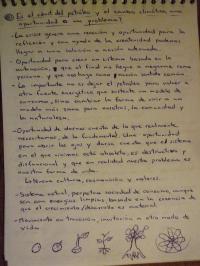 ① Es el cénit del petróleo y el cambio climático una
oportunidad o un problema?
- La crisis genera una reacción y oportunidad para la
reflexión y con ayuda de la creatividad podemos
llegar a una solución o acción adecuada.
- Oportunidad para crear un sistema basado en la
autonomía que al final me llegue a mejorar como
persona y que contenga como acción social común.
- Lo importante no es dejar el petróleo para volver a
otra fuente energética que sustente un modelo de
consumo, sino cambiar la forma de vivir a un
modelo más sano para nosotros, la comunidad y
la naturaleza.
- Oportunidad de darnos cuenta de lo que realmente
necesitamos, de lo fundamental. Una oportunidad
para abrir los ojos y darse cuenta que el sistema
en el que vivimos está obsoleto, es destructivo y
disfuncional y que en realidad nuestro problema es
nuestra forma de vida.
cultura, cosmovisión y valores.
- Sistema actual, perpetua sociedad de consumo, aunque
sea con energías limpias basado en la creencia de
que el crecimiento/desarrollo es material
- Movimiento en transición, invitación a otro modo de
vida.